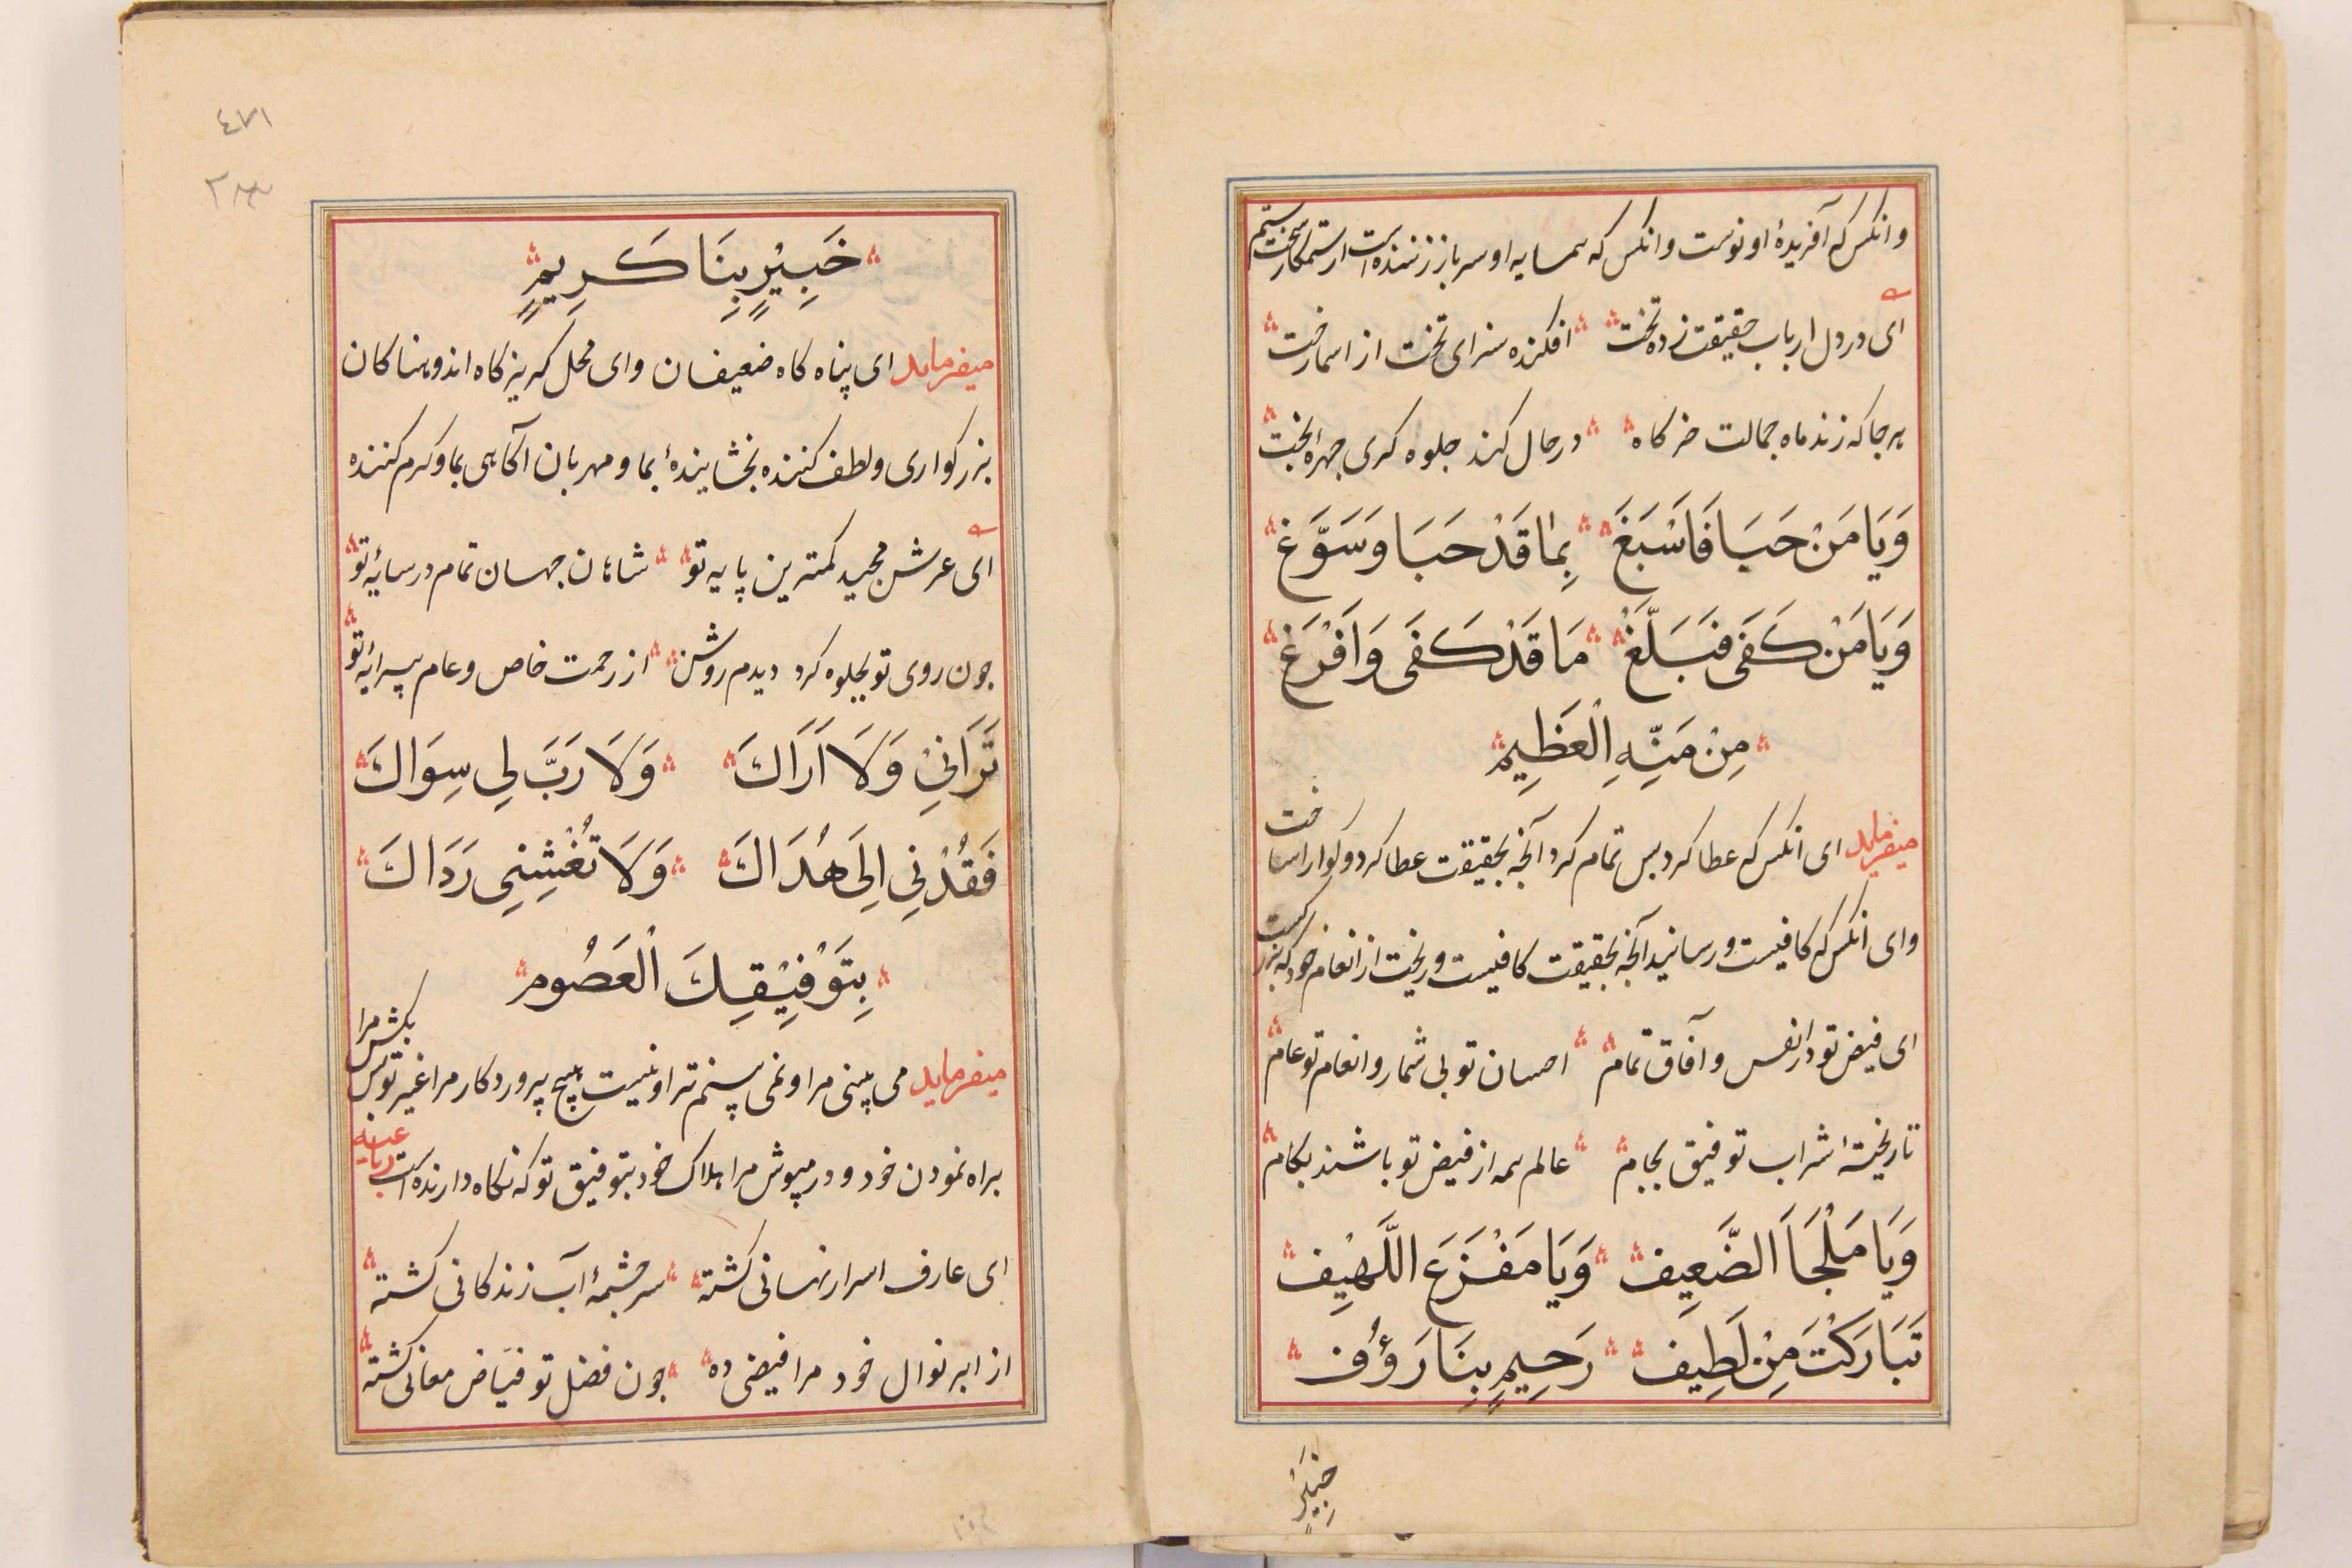 وانکس که آفریدهٔ او نوست وانکس که همسایه او سر باز زننده است از ستمکار سخت ستم
ای در دل ارباب حقیقت زده تخت افکنده سزای تخت از اسما رخت
هر جا که زند ماه جمالت خرکاه در حال کند جلوه کری چهرهٔ بخت
وَيَا مَنْ حَبَا فَاَسْبَغَ بِمٰا قَدْ حَبَا وَسَوَّغ
وَيَا مَنْ كَفَى فَبَلَّغَ مَا قَدْ كَفَى وَاَفْرَغ
مِنْ مَنِّهِ الْعَظِيمِ
میفرماید ای انکس که عطا کرد پس تمام کرد آنچه بحقیقت عطا کرد و کوارا ساخت
وای انکس که کافیست و رسانید آنچه بحقیقت کافیست و ریخت از انعام خود که بزرکست
ای فیض تو در انفس و آفاق تمام احسان تو بی شمار و انعام تو عام
تا ریختهٔ شراب توفیق بجام عالم همه از فیض تو باشند بکام
وَيَا مَلْجَاَ الضَّعِيفِ وَيَا مَفْزَعَ اللَّهِيفِ
تَبَارَكْتَ مِنْ لَطِيفٍ رَحِيمٍ بِنَا رَؤُفٍ
خَبِيْرٍ
٤٧١
خَبِيْرٍ بِنَا كَرِيمٍ
میفرماید ای پناه کاه ضعیفان وای محل کریز کاه اندوهناکان
بزرکواری و لطف کننده بخشایندهٔ بما و مهربان آکاهی بما و کرم کننده
ای عرش مجید کمترین پایه تو شاهان جهان تمام در سایهٔ تو
چون روی تو جلوه کرد دیدم روشن از رحمت خاص و عام پیرایهٔ تو
تَرَانِيْ وَلَا اَرَاكَ وَلَا رَبَّ لِي سِوَاكَ
فَقُدْنِي اِلَى هُدَاكَ وَلَا تُغْشِنِي رَدَاكَ
بِتَوْفِيْقِكَ الْعَصُومِ
میفرماید می بینی مرا و نمی بینم ترا و نیست هیچ پروردکار مرا غیر تو پس بکش مرا
براه نمودن خود و در مپوش مرا هلاک خود بتوفیق تو که نکاه دارنده است
ای عارف اسرار نهانی کشته سرچشمهٔ آب زندکانی کشته
از ابر نوال خود مرا فیضی ده چون فضل تو فیّاض معانی کشته